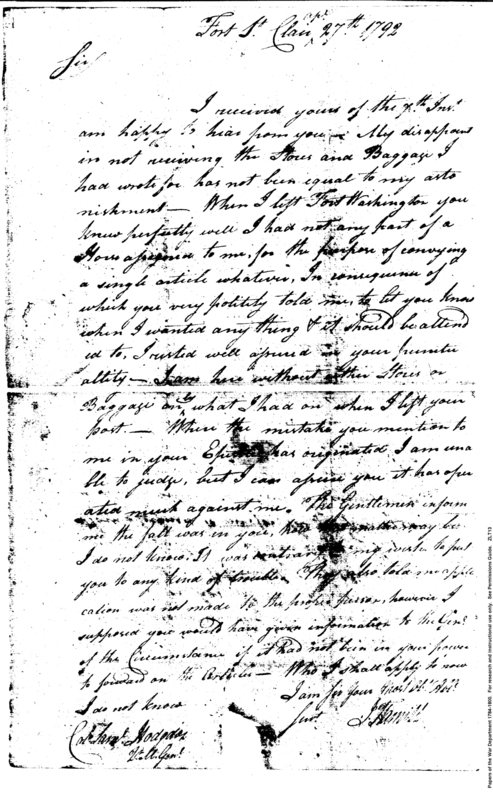 Fort St Clair Apl 27th 1792
Sir
I received yours of the 7th Inst
am happy to hear from you - My disappoint
in not receiving the Stores and Baggage I
had wrote for has not been equal to my asto
nishment — When I left Fort Washington you
knew perfectly well I had not any part of a
Horse assigned to me, for the purpose of conveying
a single article whatever, In consequence of
which you very politely told me, to let you know
when I wanted any thing & it should be attend
ed to, I rested well assured in your punctu
allity — I am here without either Stores or
Baggage only what I had on when I left your
post — Where the mistake you mention to
me in your has originated I am una
ble to judge, but I can assure you it has oper
ated much against me. The Gentlemen inform
me the falt was in you, may be
I do not know, It was my wish to put
you to any kind of trouble. They also told me appli
cation was not made to the proper person, however I
supposed you would have given information to the Genl
of the Circumstance if it had not been in your power
to forward on the Articles — Who I shall apply to now
I do not know
I am Sir your most Ob. Hbl
Servt
Saml Hodgdon
Papers of the War Department 1784-1800. For research and instructional use only. See Permissions Guide.